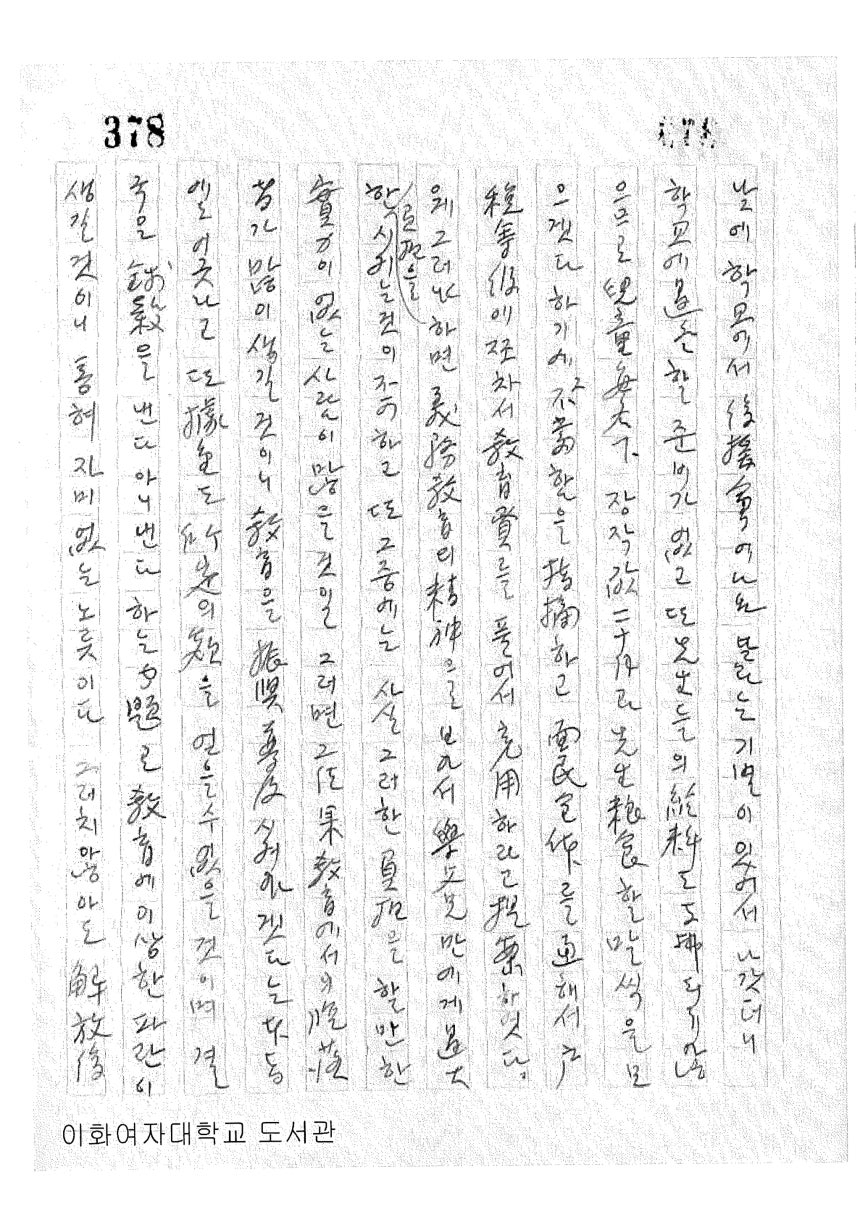 378
날에 학교에서 後援會 여니 오 달라는 기별이 있어서 나갓더니
학교에 할 준비가 없고 또 先生들의 給料도 支拂되지 않
으므로 兒童每名下 장작값 二十円과 先生粮食 할 말씩을 모
으겟다 하기에 不當함을 指摘하고 面民全体를 通해서 戶
稅等級에 조차서 敎育費를 풀어서 充用하라고 提案하엿다.
웨 그러냐 하면 義務敎育의 精神으로 보아서 學父兄만에게 過大
한 負担을 시키는 것이 하고 또 그중에는 사실 그러한 負担을 할만한
實力이 없는 사람이 많을 것일 그러면 그 結果 敎育에서의 脫落
者가 많이 생길 것이니 敎育을 振興普及시켜가겟다는
에 어긋나고 또 據出도 所定의 額을 얻을 수 없을 것이며 결
국은 錢穀을 낸다 아니 낸다 하는 問題로 敎育에 이상한 파란이
생길 것이니 통혀 자미없는 노릇이다 그러치 않아도 解放後
이화여자대학교 도서관